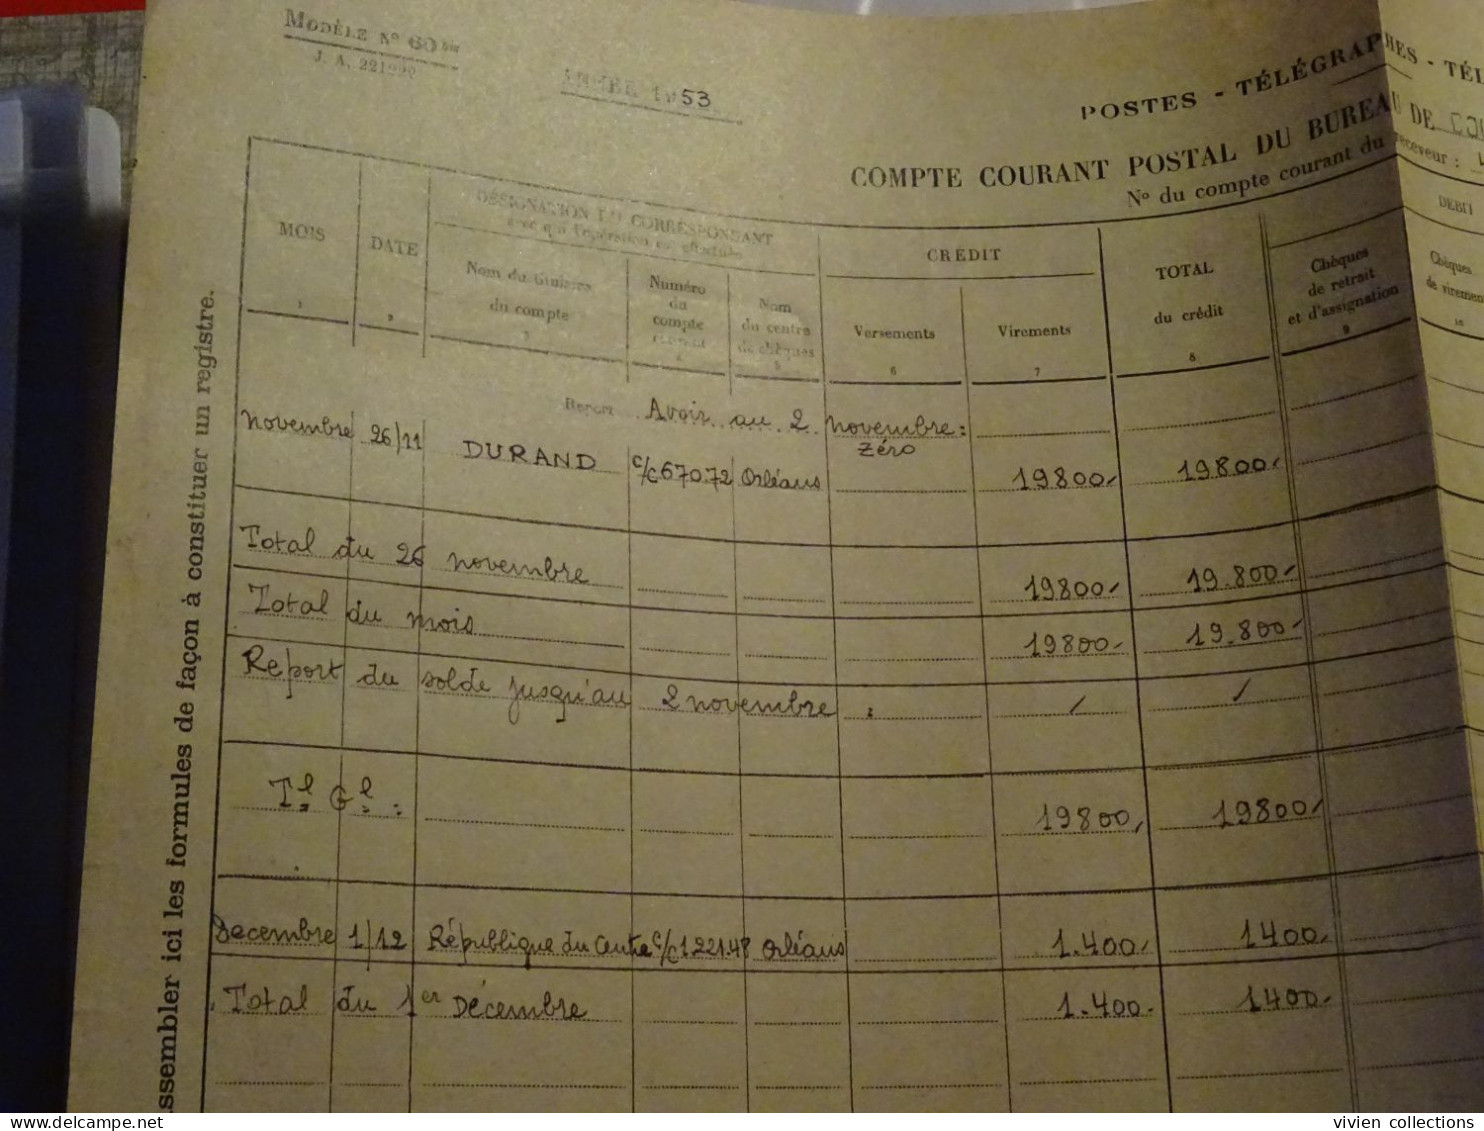 MODÈLE N° 60 bis
J. A. 221
ANNÉE 1953
POSTES - TÉLÉGRAPHES - TÉL
COMPTE COURANT POSTAL DU BUREAU DE
N° du compte courant du receveur :
MOIS
1
DATE
2
DÉSIGNATION DU CORRESPONDANT
avec qui l'opération est effectuée
Nom du titulaire
du compte
3
Numéro
du
compte
courant
4
Nom
du centre
de chèques
5
CREDIT
Versements
6
Virements
7
TOTAL
du crédit
8
DEBIT
Chèques
de retrait
et d'assignation
9
Chèques
de viremen
10
Report Avoir au 2 novembre :
zéro
novembre 26/11 DURAND c/c 670.72 Orléans 19800 19800
Total du 26 novembre 19800 19.800
Total du mois 19800 19.800
Report du solde jusqu'au 2 novembre : / /
Tl Gl : 19800 19800
Decembre 1/12 République du Centre c/c 1221.48 Orléans 1.400 1400
Total du 1er Décembre 1.400 1400
assembler ici les formules de façon à constituer un registre.
vivien collections